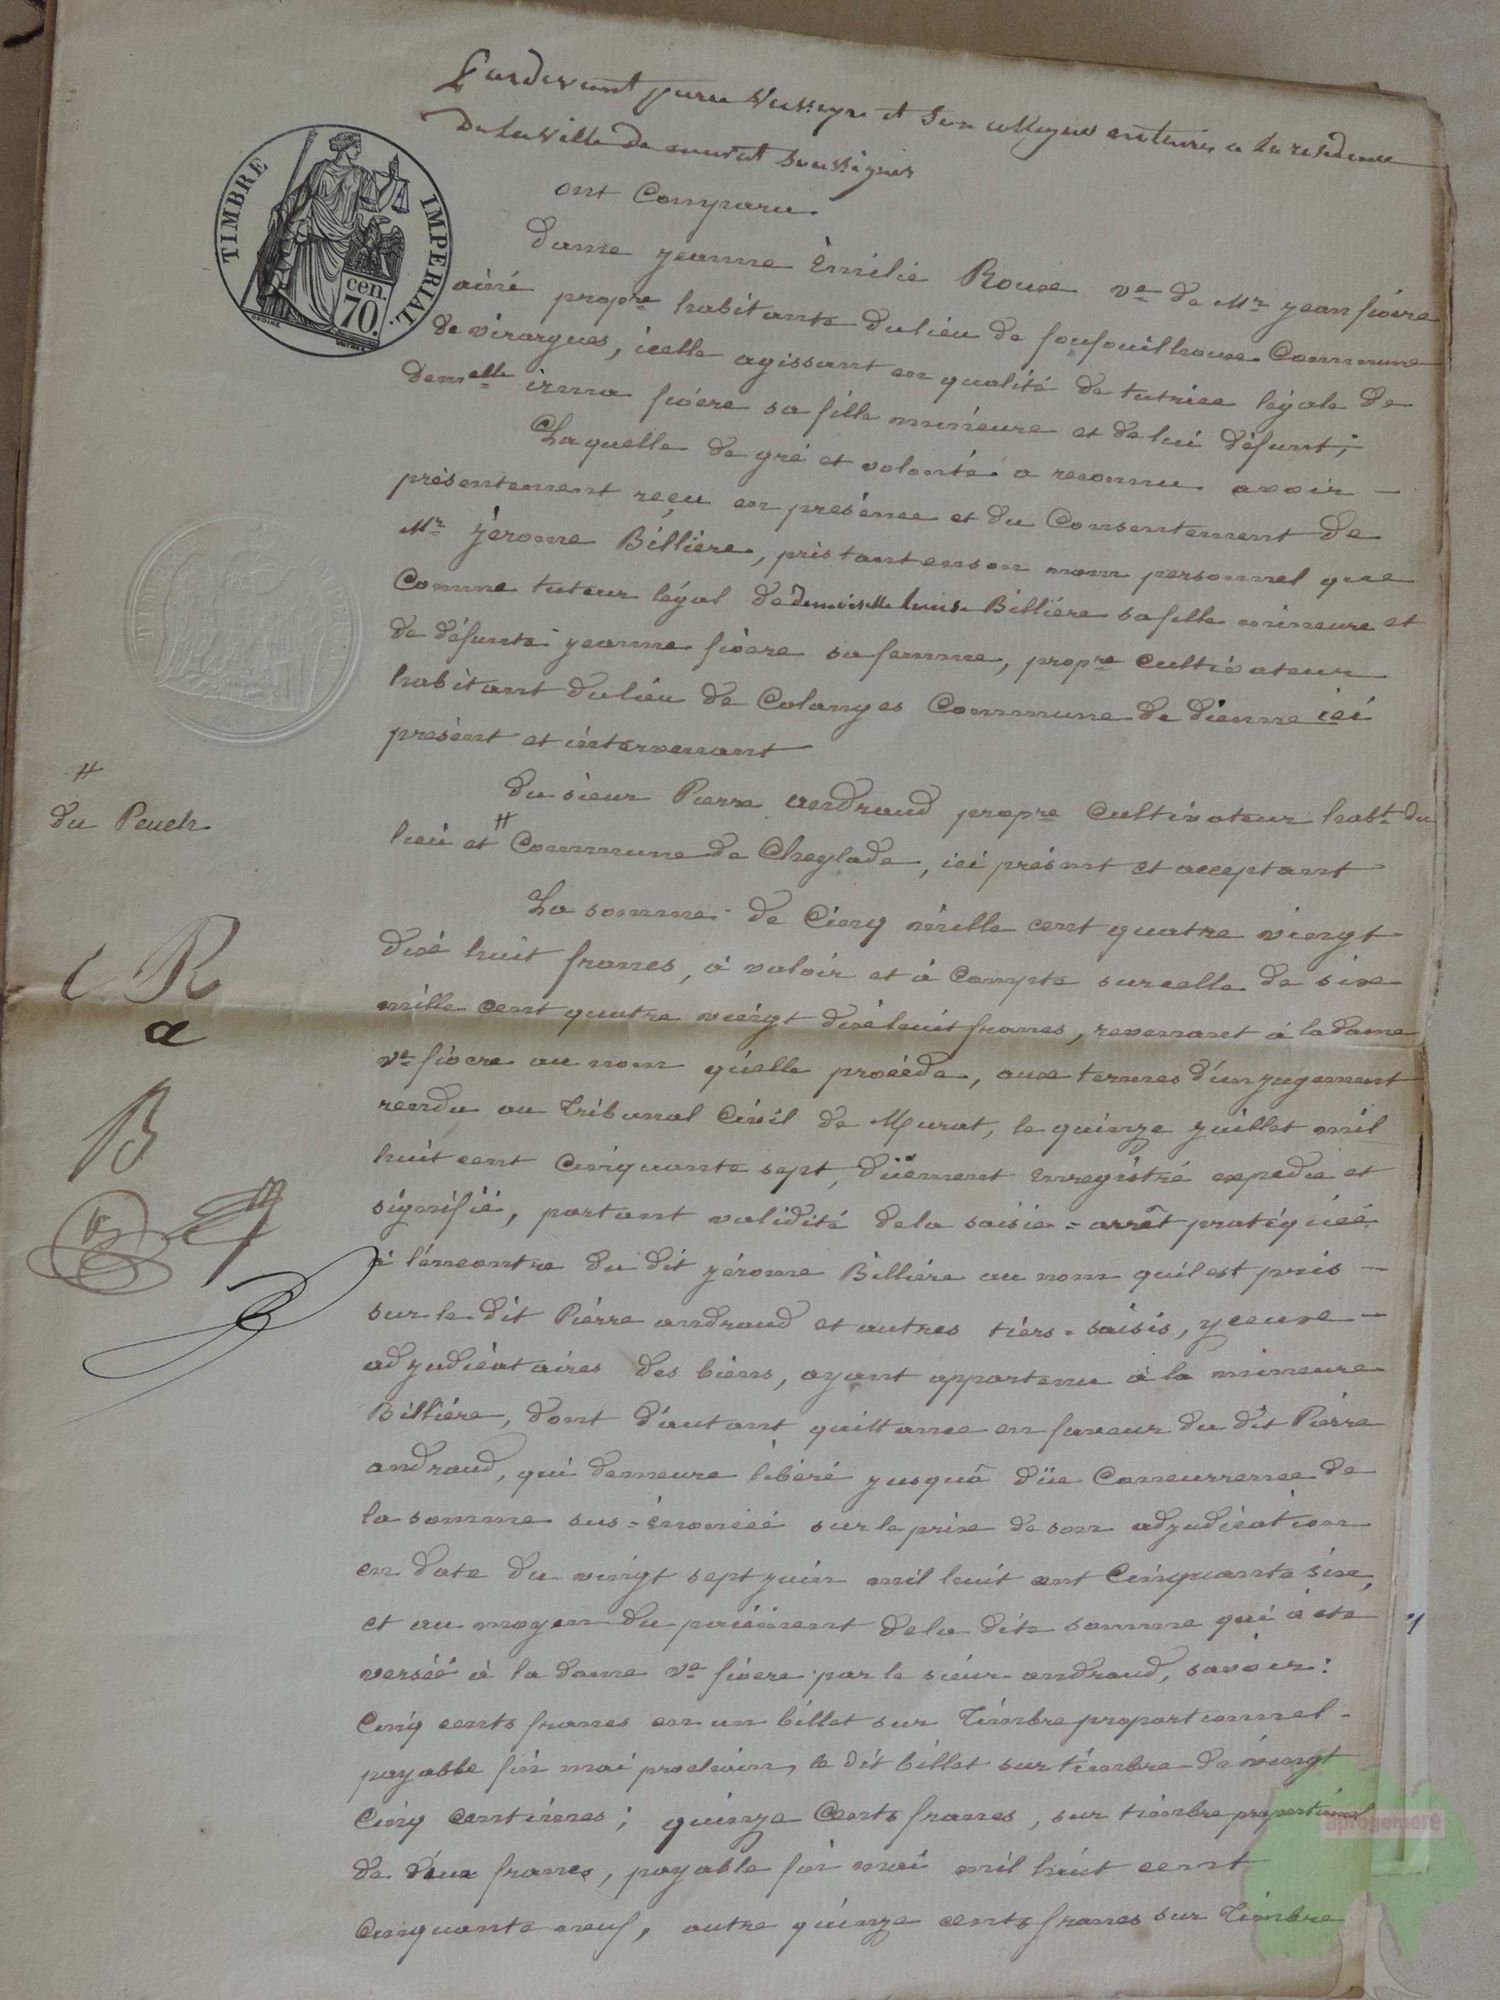 Pardevant pierre Vusseyre et son collegue notaires a la residence
De la ville de murat soussignés
ont Comparu
TIMBRE IMPERIAL
cen. 70.
Dame jeanne Emilie Roux ve de Mr jean fiocre
ainé propre habitante du lieu de foufouilhoux Commune
de virargues, icelle agissant en qualité de tutrice légale de
demelle irma fiocre sa fille mineure et de lui défunt;
Laquelle de gré et volonté a reconnu avoir –
présentement reçu en présence et du Consentement de
Mr jérome Billière, pris tant en son nom personnel que
Comme tuteur légal de demoiselle louise Billière sa fille mineure et
de défunte jeanne fiocre sa femme, propre Cultivateur
habitant du lieu de Colanges Commune de dienne ici
présent et intervenant
du sieur Pierre andraud propre Cultivateur habt du
lieu et # Commune de Cheylade, ici présent et acceptant
#
du Peuch
La somme de Cinq mille cent quatre vingt
dix huit francs, à valoir et à Compte sur celle de six
mille cent quatre vingt dix huit francs, revenant à la dame
ve fiocre au nom qu'elle procède, aux termes d'un jugement
rendu au Tribunal Civil de Murat, le quinze juillet mil
huit cent Cinquante sept, düement Enregistré expedié et
signifié, portant validité de la saisie = arrêt pratiquée
à l'encontre du dit jérome Billière au nom qu'il est pris –
sur le dit Pierre andraud et autres tiers = saisis, yceux –
adjudicataires des biens, ayant appartenu à la mineure
Billière, dont d'autant quittance en faveur du dit Pierre
andraud, qui demeure libéré jusqu'à düe Concurrence de
la somme sus = énoncée sur le prix de son adjudication
en date du vingt sept juin mil huit cent Cinquante six,
et au moyen du paiement de la dite somme qui a été
versée à la dame ve fiocre par le sieur andraud, savoir:
Cinq cents francs en un billet sur Timbre proportionnel –
payable fin mai prochain, le dit billet sur timbre de vingt
Cinq centimes; quinze Cents francs, sur timbre proportionnel
de deux francs, payable fin mai mil huit cent
Cinquante neuf, autre quinze cents francs sur Timbre
R
a
B
aprogemere